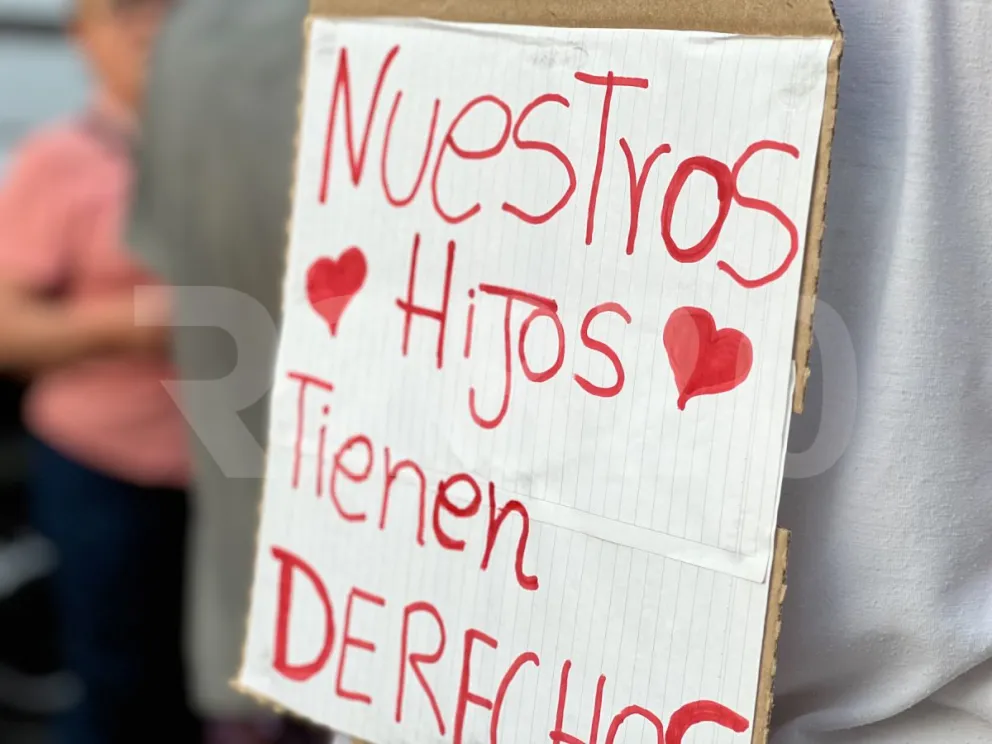 NUeSTrOS
HiJOS
Tienen
DERECHOS